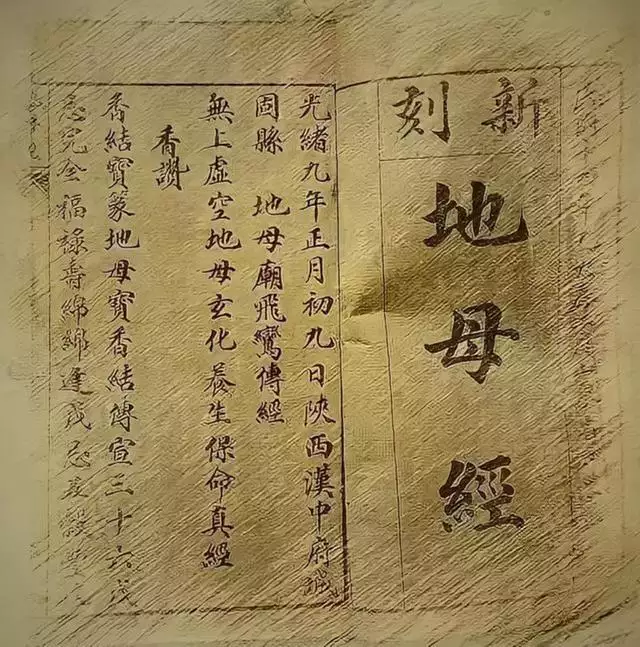 新刻
地母經
光緒九年正月初九日陝西漢中府城
固縣 地母廟飛鸞傳經
無上虛空地母玄化養生保命真經
香讚
香結寶篆地母寶香結傳宣三十戊
忌完全福祿壽綿綿逢戊忌